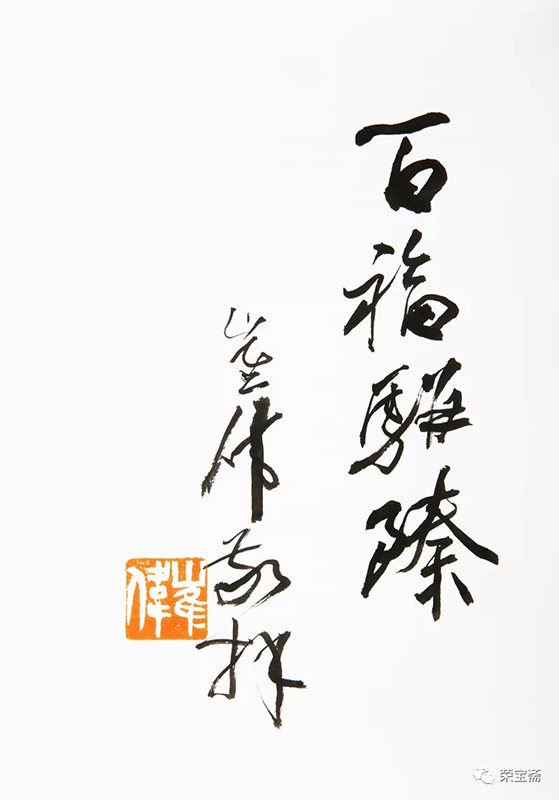 百福骈臻
崔伟敬拜
崔偉
荣宝斋